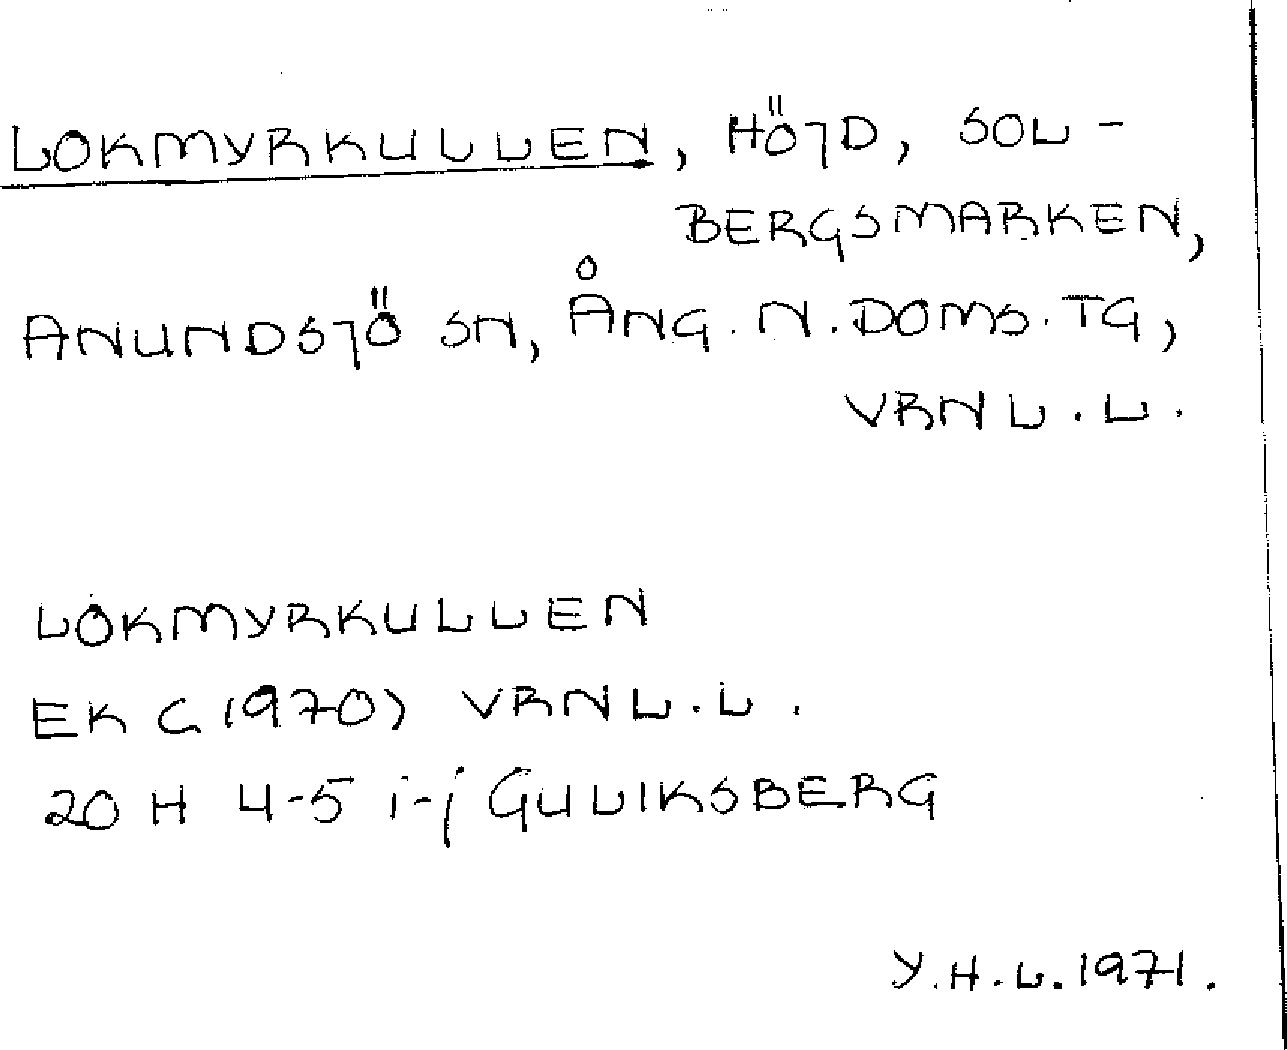 LOKMYRKULLEN, HÖJD, SOL-
BERGSMARKEN,
ANUNDSJÖ SN, ÅNG. N. DOMS. TG,
VRNL.L.
LOKMYRKULLEN
EK C (1970) VRNL.L.
20 H 4-5 i-j GULIKSBERG
Y.H.L. 1971.